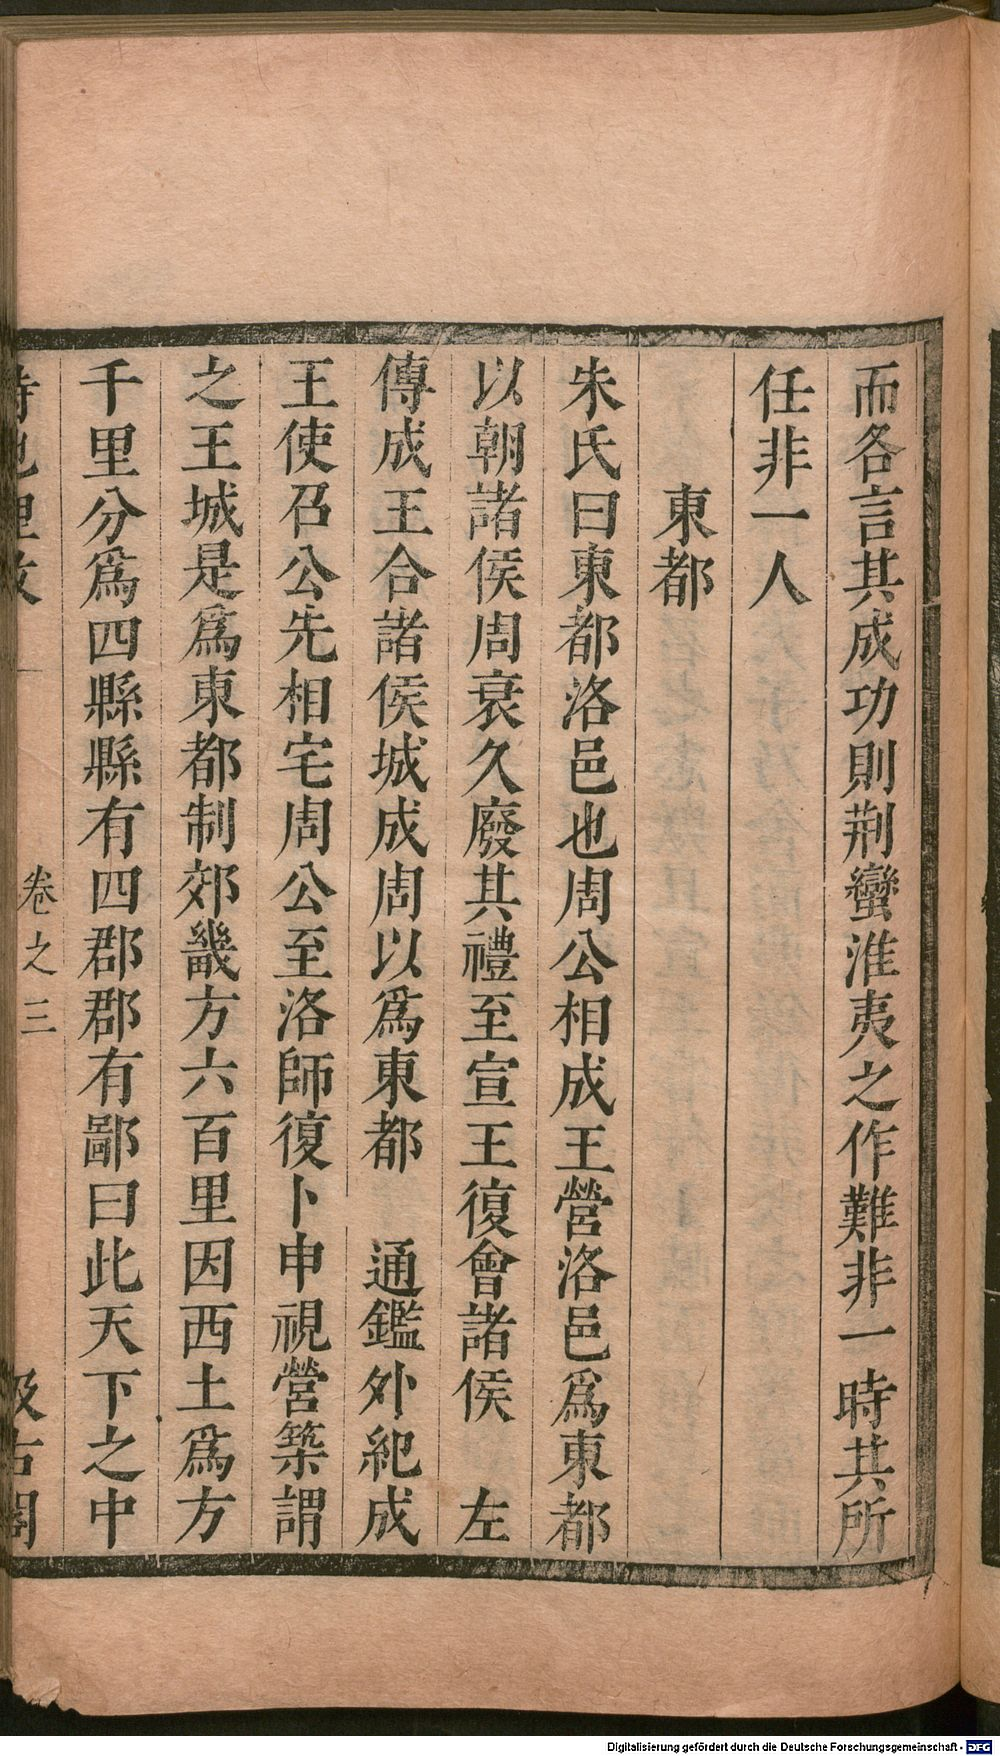 而各言其成功則荆蠻淮夷之作難非一時共所
任非一人
東都
朱氏曰東都洛邑也周公相成王營洛邑爲東都
以朝諸侯周衰久廢其禮至宣王復會諸侯 左
傳成王合諸侯城成周以爲東都 通鑑外紀成
王使召公先相宅周公至洛師復卜申視營築謂
之王城是爲東都制郊畿方六百里因西土爲方
千里分爲四縣縣有四郡郡有鄙曰此天下之中
詩地理攷 卷之三 汲古閣
Digitalisierung gefördert durch die Deutsche Forschungsgemeinschaft - DFG